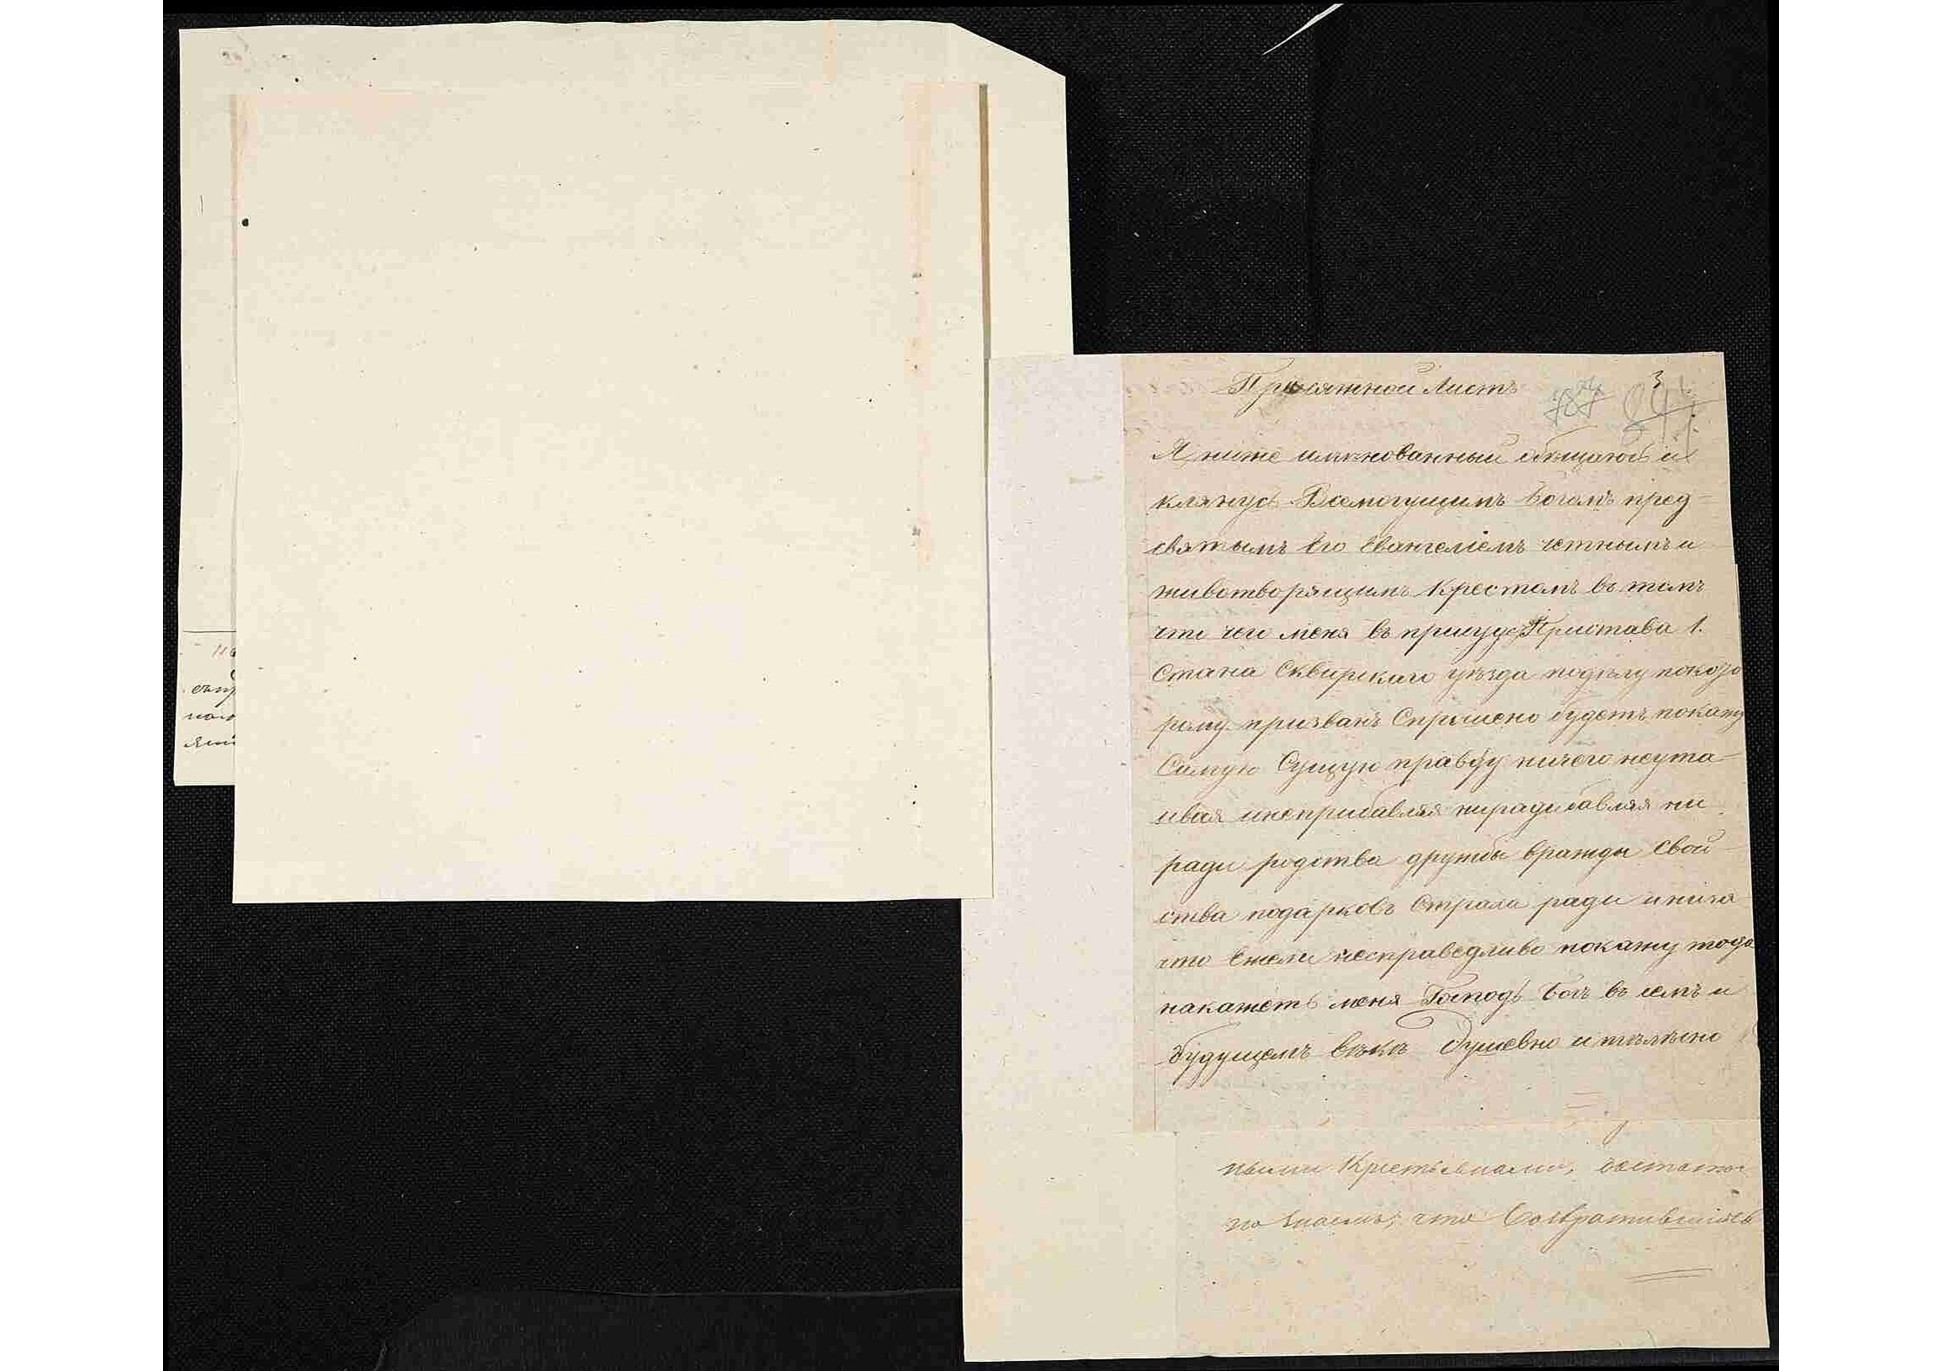 Присяжной Листъ
787 841
3
Я ниже имѣнованный обѣщаюсь и
клянусь Всемогущимъ Богомъ пред-
святымъ Его Евангеліемъ чѣтнымъ и
животворящимъ Крестомъ въ томъ
что чего меня въ присуд Пристава 1.
Стана Сквирскаго уѣзда подѣлу покото
рому призванъ Спрошено будетъ покажу
Самую Сущую правду ничего неута-
ивая инеприбавляя нирадисбавляя ни
ради родства дружбы вражды Свой-
ства подарковъ Страха ради и
что Ежели несправедливо покажу тогда
накажетъ меня Господь Богъ въ семъ и
будущемъ вѣкѣ Душевно и тѣлѣсно
ными Крестьянами,
что Совратившіесь